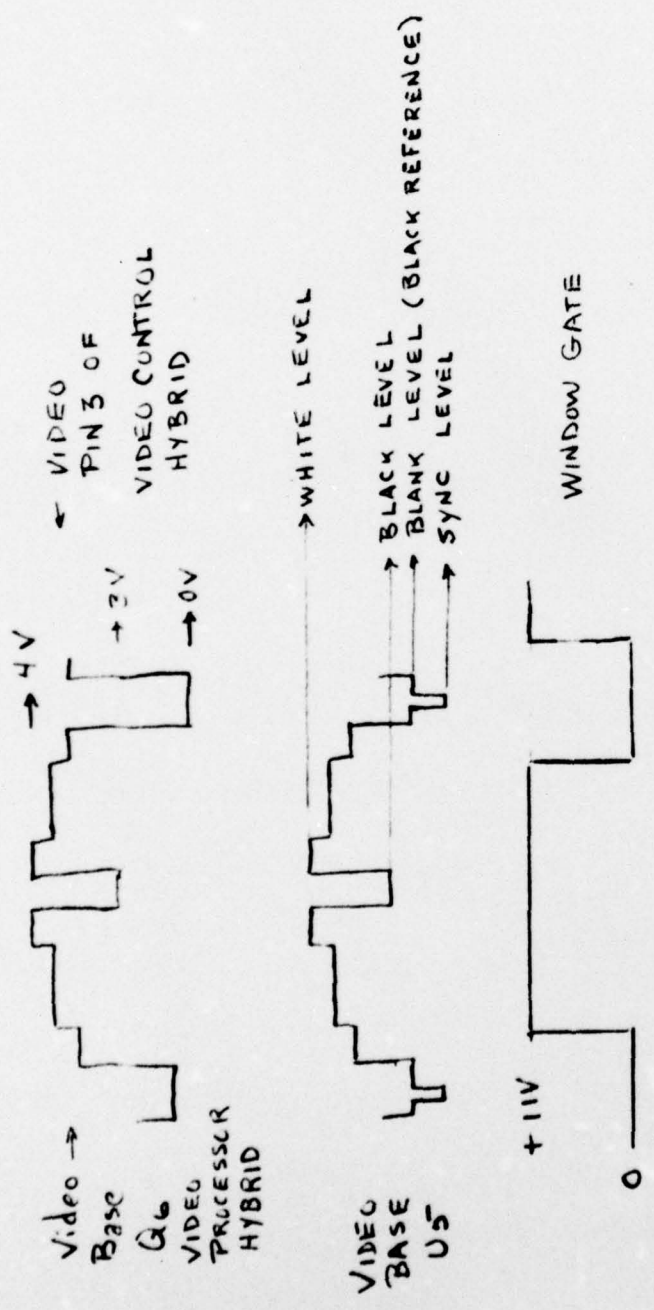 Video →
Base
Q6
VIDEO
PROCESSOR
HYBRID
→ 4 V
→ 3 V
→ 0V
← VIDEO
PIN 3 OF
VIDEO CONTROL
HYBRID
VIDEO
BASE
U5
→ WHITE LEVEL
→ BLACK LEVEL
→ BLANK LEVEL (BLACK REFERENCE)
→ SYNC LEVEL
+ 11V
0
WINDOW GATE